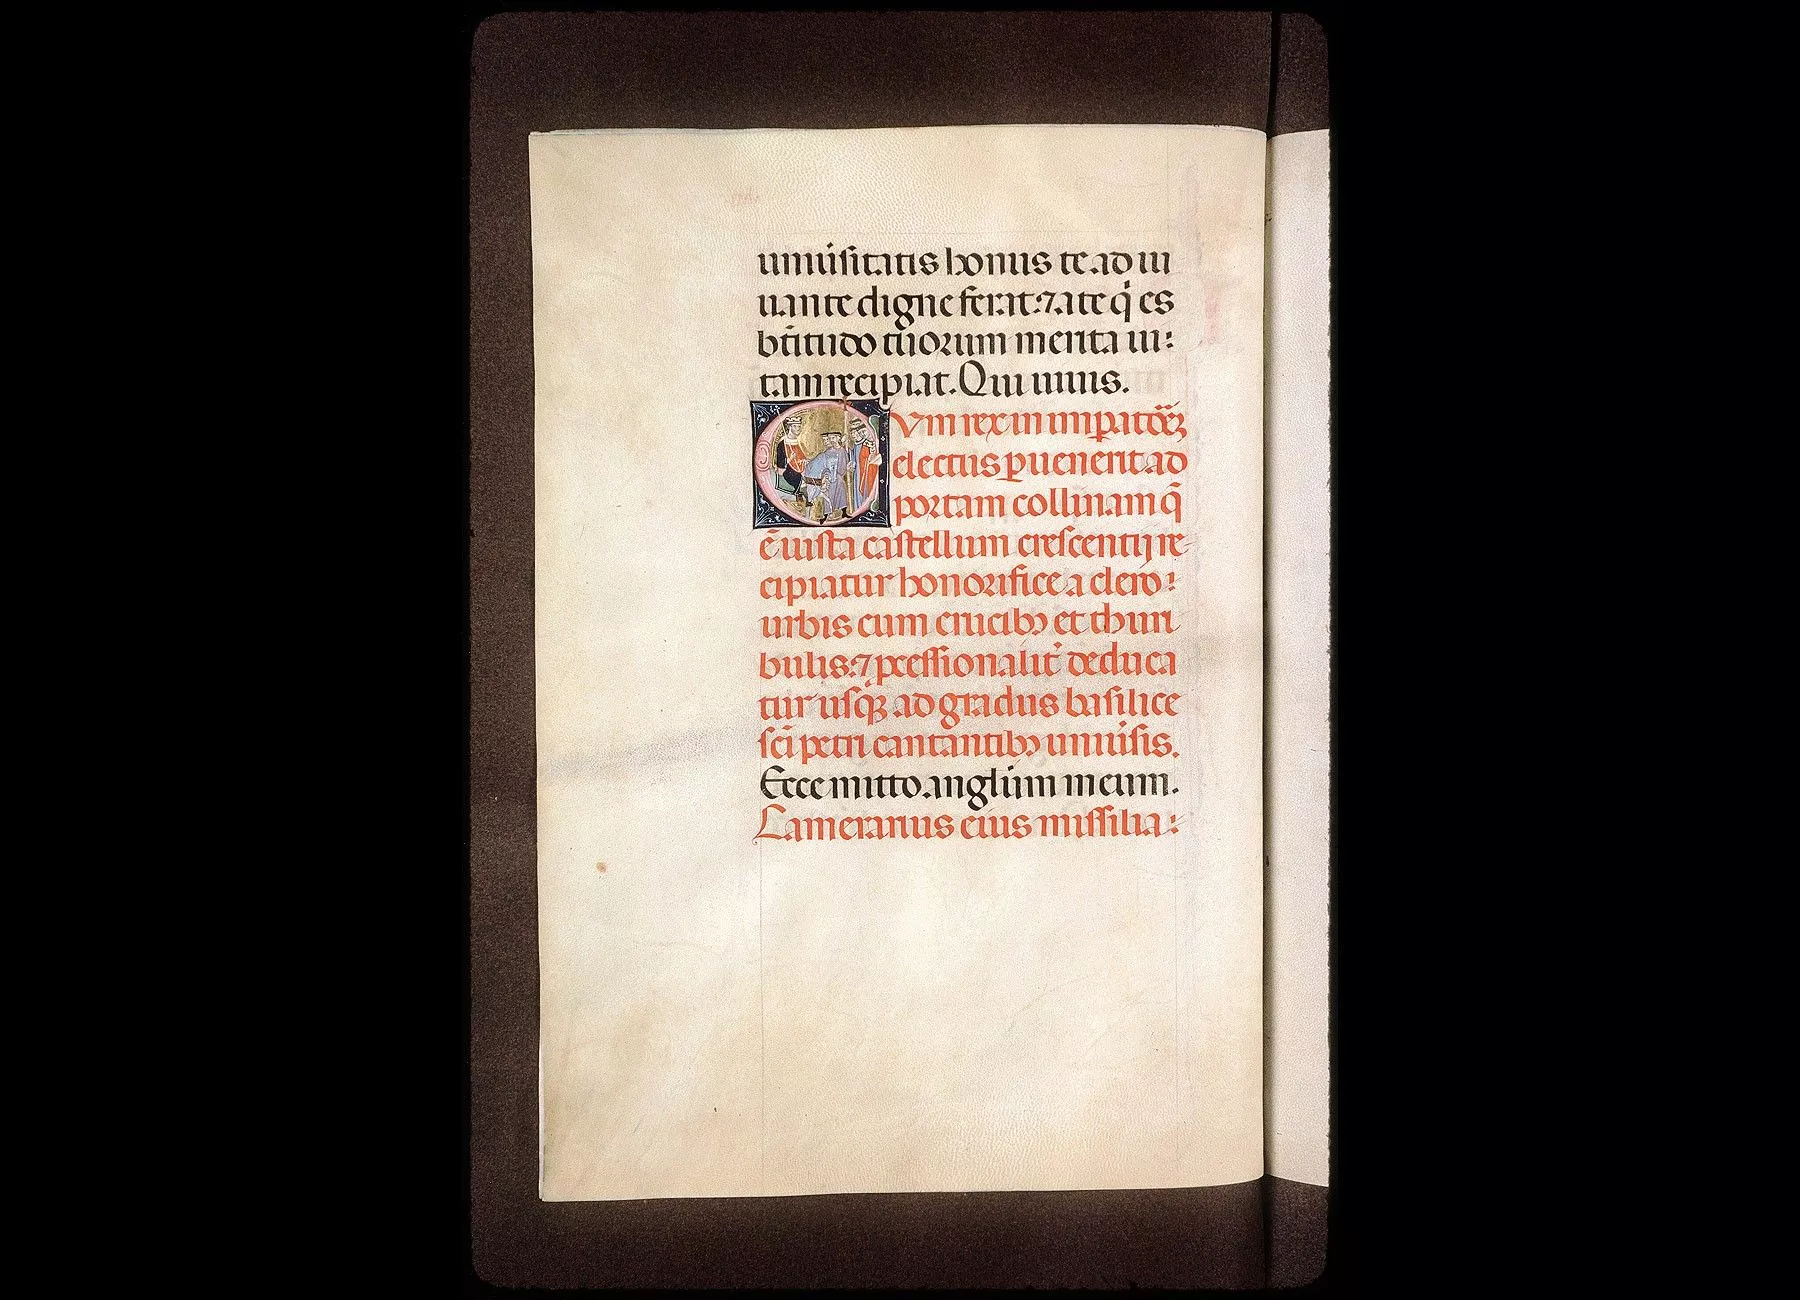 uniũsitatis honus te ad iu
uante digne ferat: ⁊ a te q̇ es
bt̃itudo tuorum merita ui:
tam recipiat. Qui uiuis.
Cvm rex in imꝑatoreꝫ
electus ꝑuenerit ad
portam collinam q̃
ẽ iuxta castellum crescentij re
cipiatur honorifice a clero:
urbis cum crucibꝫ et thuri
bulis: ⁊ ꝓcessionalit̃ deduca
tur usqꝫ ad gradus basilice
sc̃i petri cantantibꝫ uniũsis.
Ecce mitto angl̃um meum.
Camerarius eius missilia: